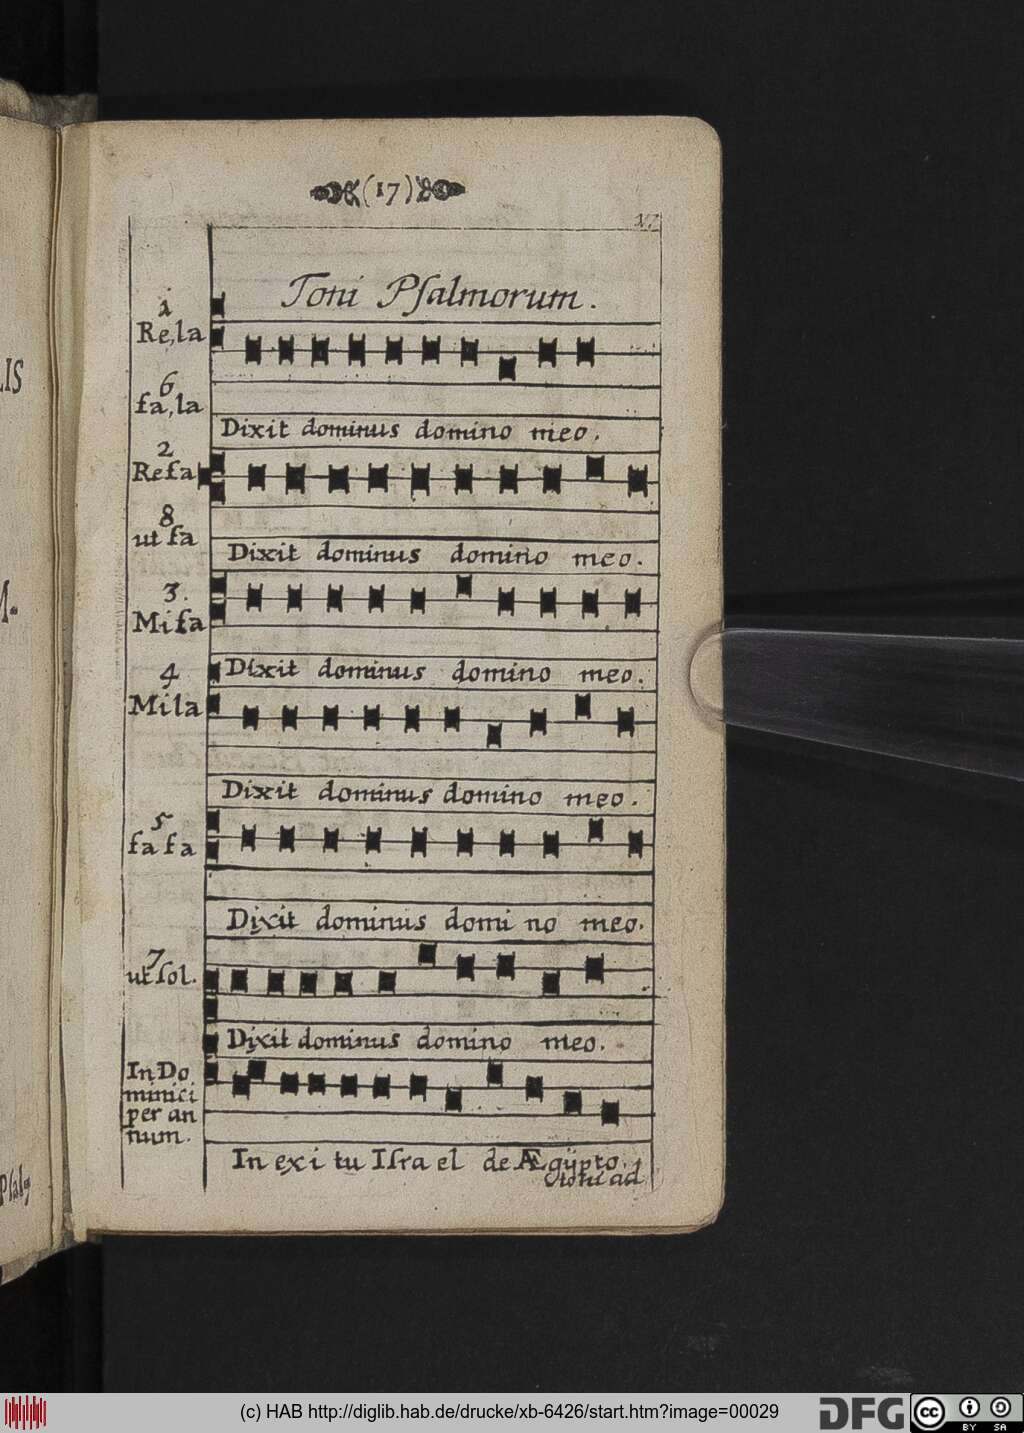 LIS
M.
(17)
17
Toni Pſalmorum.
1
Re,la
6
fa,la
Dixit dominus domino meo.
2
Refa
8
ut fa
Dixit dominus domino meo.
3.
Mifa
Dixit dominus domino meo.
4
Mila
Dixit dominus domino meo.
5
fa fa
Dixit dominus domi no meo.
7
ut ſol.
Dixit dominus domino meo.
In Do
minici
per an
num.
In exi tu Iſra el de Ægÿpto.
toni ad
(c) HAB http://diglib.hab.de/drucke/xb-6426/start.htm?image=00029
DFG
cc
BY SA